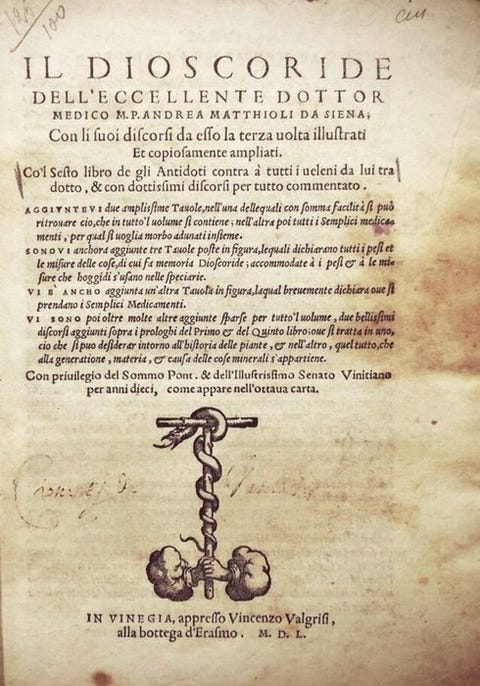 IL DIOSCORIDE
DELL'ECCELLENTE DOTTOR
MEDICO M.P. ANDREA MATTHIOLI DA SIENA;
Con li suoi discorsi da esso la terza uolta illustrati
Et copiosamente ampliati.
Co'l Sesto libro de gli Antidoti contra à tutti i ueleni da lui tra
dotto, & con dottissimi discorsi per tutto commentato.
AGGIVNTEVI due amplissime Tauole, nell'una dellequali con somma facilità si può
ritrouare cio, che in tutto'l uolume si contiene; nell'altra poi tutti i Semplici medica-
menti, per qual si uoglia morbo adunati insieme.
SONOVI anchora aggiunte tre Tauole poste in figura, lequali dichiarano tutti i pesi et
le misure delle cose, di cui fa memoria Dioscoride; accommodate à i pesi & à le mi-
sure che hoggidi s'usano nelle speciarie.
VI E' ANCHO aggiunta un'altra Tauola in figura, laqual breuemente dichiara oue si
prendano i Semplici Medicamenti.
VI SONO poi oltre molte altre aggiunte sparse per tutto'l uolume, due bellissimi
discorsi aggiunti sopra i prologhi del Primo & del Quinto libro: oue si tratta in uno,
cio che si puo desiderar intorno all'historia delle piante, & nell'altro, quel tutto, che
alla generatione, materia, & causa delle cose minerali s'appartiene.
Con priuilegio del Sommo Pont. & dell'Illustrissimo Senato Vinitiano
per anni dieci, come appare nell'ottaua carta.
IN VINEGIA, appresso Vincenzo Valgrisi,
alla bottega d'Erasmo. M. D. L.